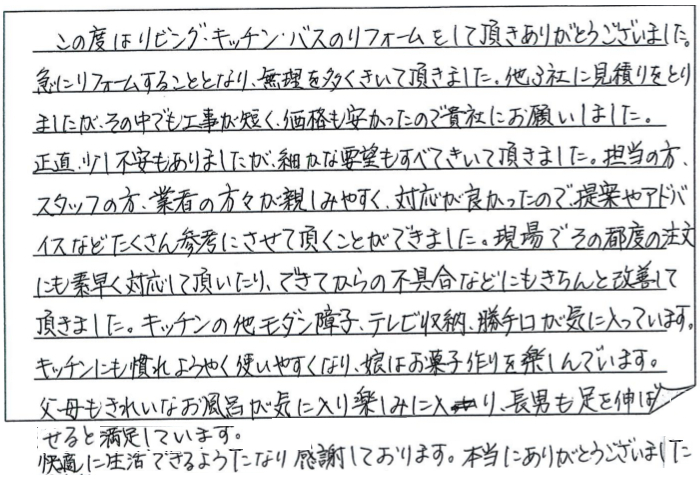 この度はリビング・キッチン・バスのリフォームをして頂きありがとうございました。
急にリフォームすることとなり、無理を多くきいて頂きました。他3社に見積りをとり
ましたが、その中でも工事が短く、価格も安かったので貴社にお願いしました。
正直、少し不安もありましたが、細かな要望もすべてきいて頂きました。担当の方、
スタッフの方、業者の方々が親しみやすく、対応が良かったので、提案やアドバ
イスなどたくさん参考にさせて頂くことができました。現場でその都度の注文
にも素早く対応して頂いたり、できてからの不具合などにもきちんと改善して
頂きました。キッチンの他モダン障子、テレビ収納、勝手口が気に入っています。
キッチンにも慣れようやく使いやすくなり、娘はお菓子作りを楽しんでいます。
父母もきれいなお風呂が気に入り楽しみに入り、長男も足を伸ば
せると満足しています。
快適に生活できるようになり感謝しております。本当にありがとうございました